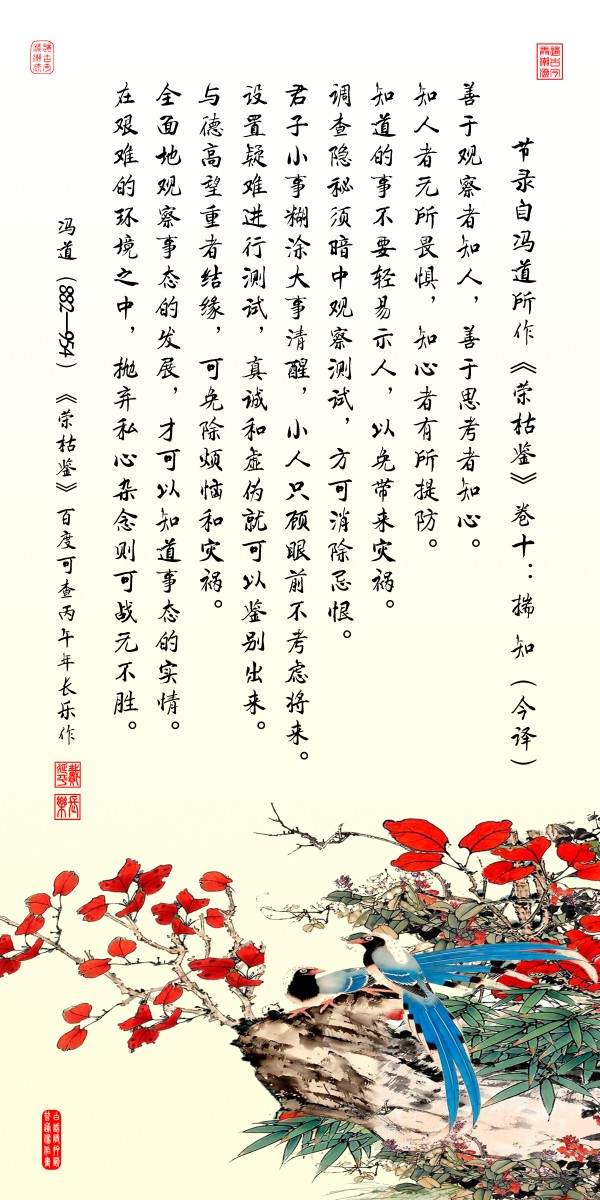 节录自冯道所作《荣枯鉴》卷十：揣知（今译）
善于观察者知人，善于思考者知心。
知人者无所畏惧，知心者有所提防。
知道的事不要轻易示人，以免带来灾祸。
调查隐秘须暗中观察测试，方可消除忌恨。
君子小事糊涂大事清醒，小人只顾眼前不考虑将来。
设置疑难进行测试，真诚和虚伪就可以鉴别出来。
与德高望重者结缘，可免除烦恼和灾祸。
全面地观察事态的发展，才可以知道事态的实情。
在艰难的环境之中，抛弃私心杂念则可战无不胜。
冯道（882—954）《荣枯鉴》百度可查丙午年长乐作